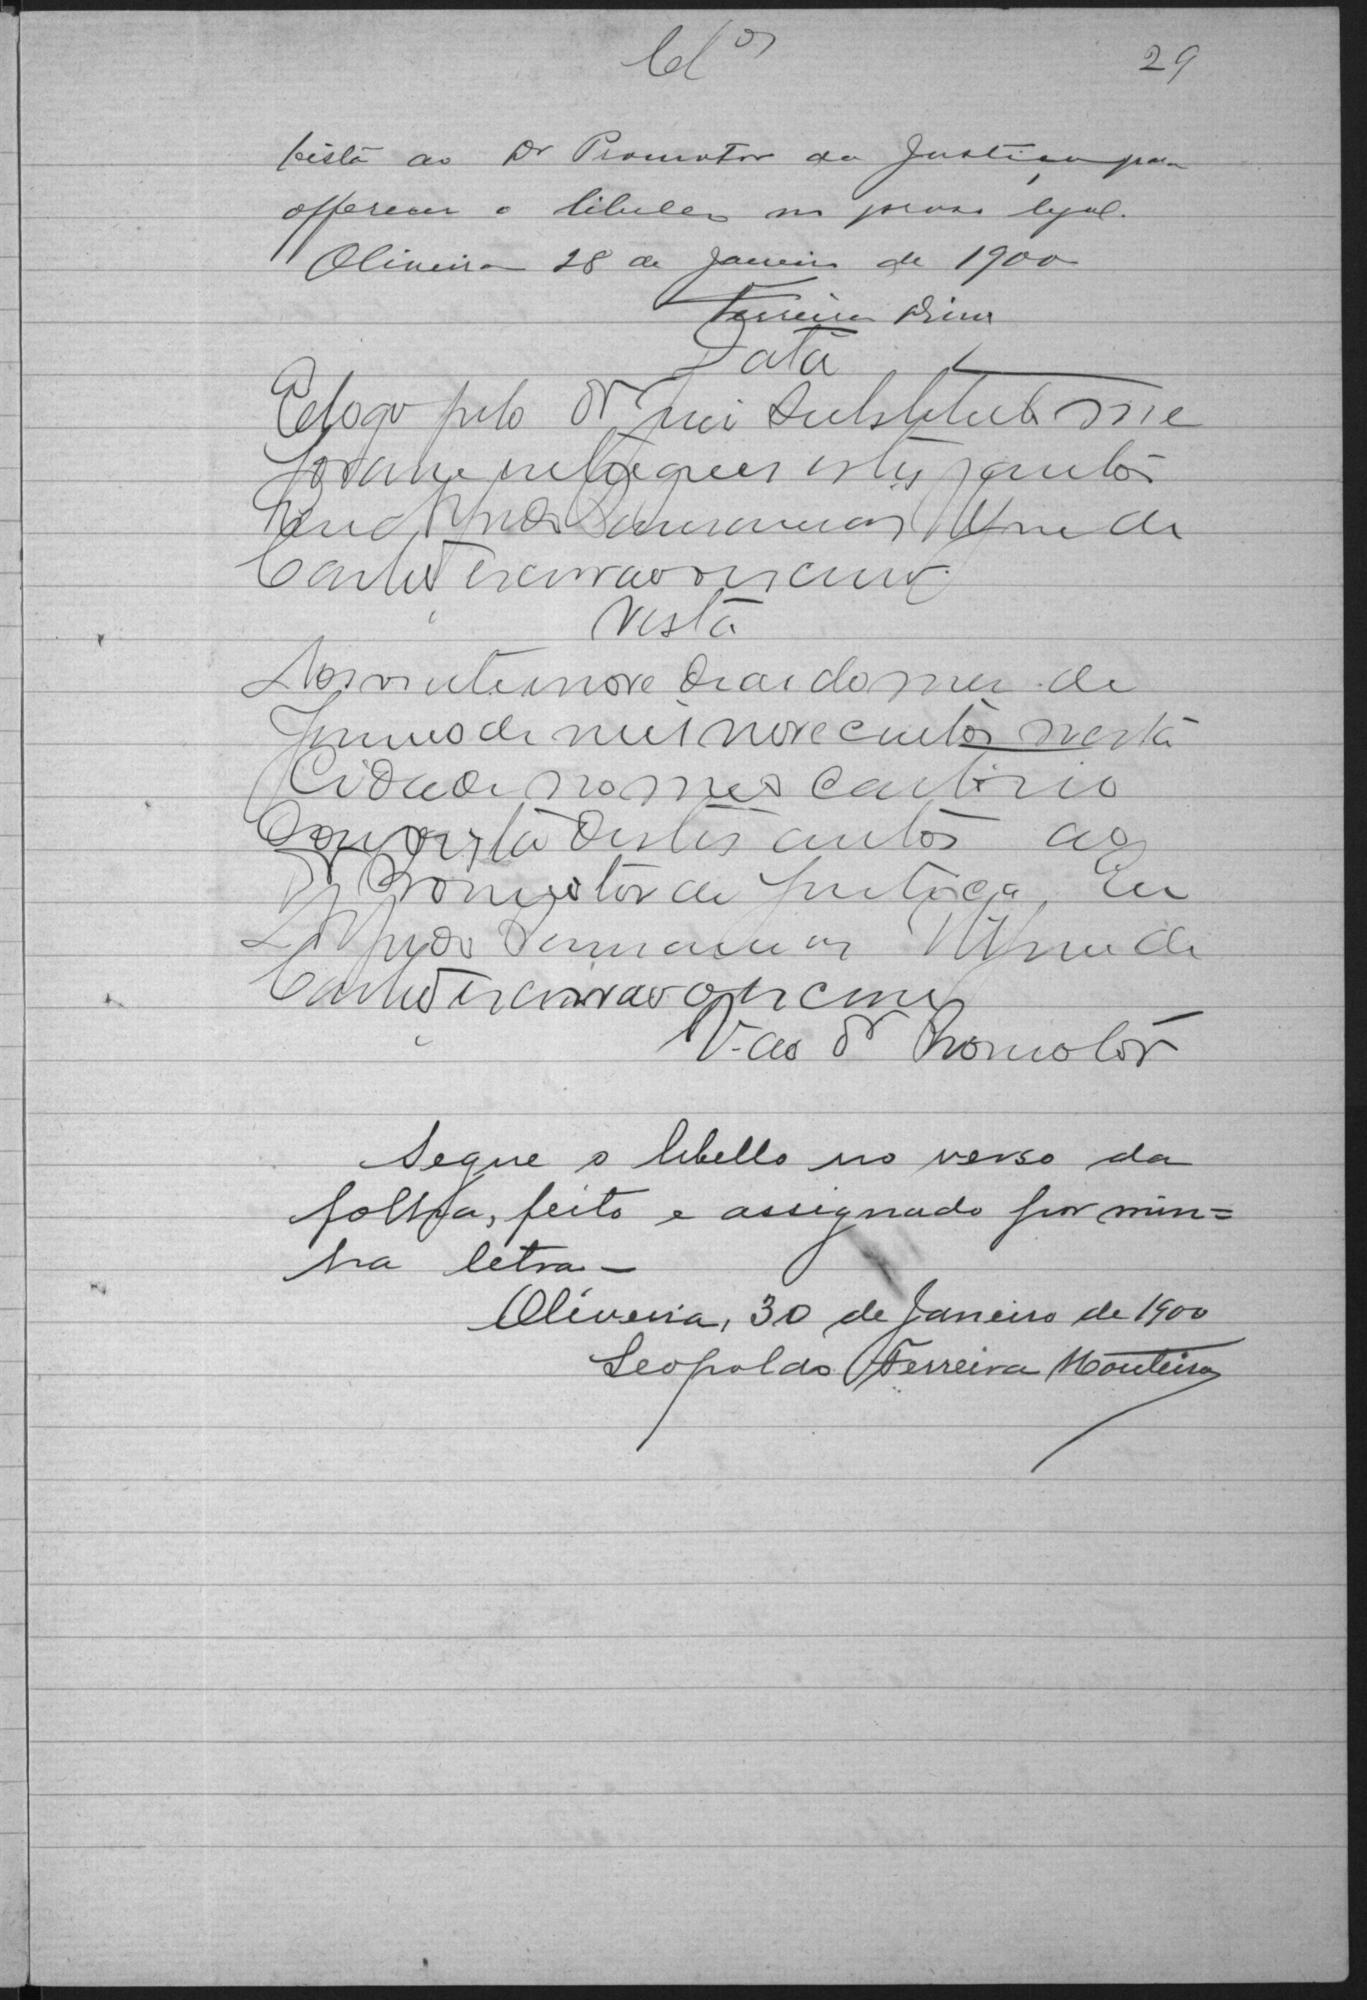 Cl.os
29
Vista ao Dr Promotor da Justiça para
offerecer o libello no praso legal.
Oliveira 28 de Janeiro de 1900
Ferreira Diniz
Data
E logo pelo Dr Juiz Substituto me
foram entregues estes autos
de
Castro escrivão o escrevi
Vista
Aos vinte nove dias do mez de
Janeiro de mil nove centos nesta
Cidade no meu cartorio
Com vista destes autos ao
Dr Promotor de Justiça Eu
de
Castro escrivão o escrevi
V. ao Dr Promotor
Segue o libello no verso da
folha, feito e assignado por min=
ha letra –
Oliveira, 30 de Janeiro de 1900
Leopoldo Ferreira Monteiro